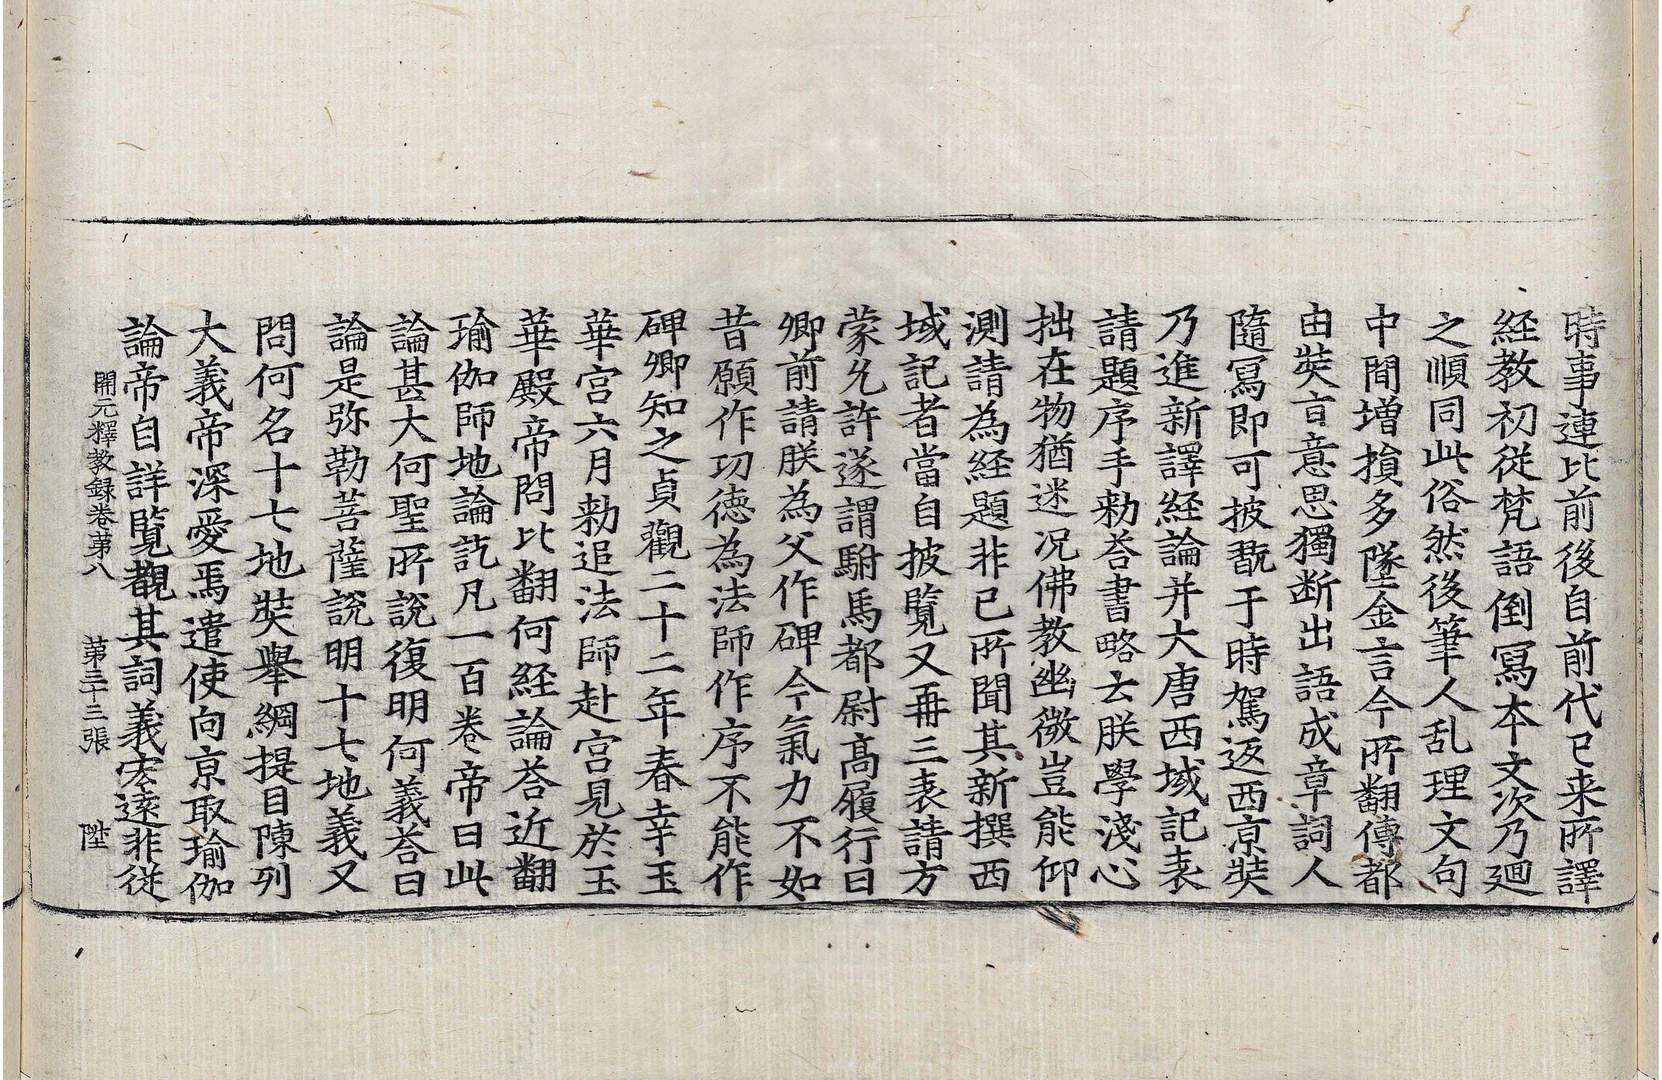 時事連比前後自前代已来所譯
経教初従梵語倒冩夲文次乃廻
之順同此俗然後筆人乱理文句
中間增損多墜金言今所翻傳都
由奘㫖意思獨断出語成章詞人
隨冩即可披翫于時駕返西京奘
乃進新譯経論并大唐西域記表
請題序手勑荅書略云朕學淺心
拙在物猶迷况佛教幽微豈能仰
測請為経題非己所聞其新撰西
域記者當自披覽又再三表請方
蒙允許遂謂駙馬都尉髙履行曰
卿前請朕為父作碑今氣力不如
昔願作功徳為法師作序不能作
碑卿知之貞觀二十二年春幸玉
華宮六月勑追法師赴宮見於玉
華殿帝問比翻何経論荅近翻
瑜伽師地論訖凡一百卷帝曰此
論甚大何聖所説復明何義荅曰
論是弥勒菩薩説明十七地義又
問何名十七地奘舉綱提目陳列
大義帝深愛焉遣使向京取瑜伽
論帝自詳覽覩其詞義宏遠非従
開元釋教録卷第八　第三十三張　陞